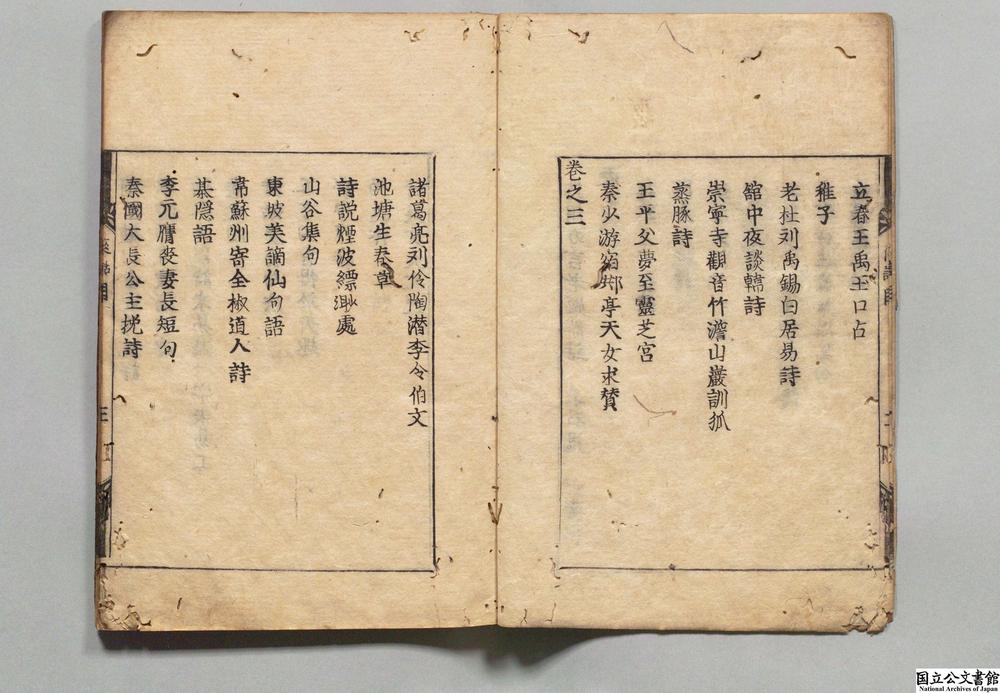 立春王禹玉口占
稚子
老杜刘禹錫白居易詩
舘中夜談韓詩
崇寧寺觀音竹澹山巖訓狐
蒸豚詩
王平父夢至靈芝宮
秦少游宿邮亭天女求賛
卷之三
諸葛亮刘伶陶潜李令伯文
池塘生春草
詩説煙波縹渺處
山谷集句
東坡美謫仙句語
韋蘇州寄全椒道人詩
棊隠語
李元膺丧妻長短句
秦國大長公主挽詩
国立公文書館
National Archives of Japan